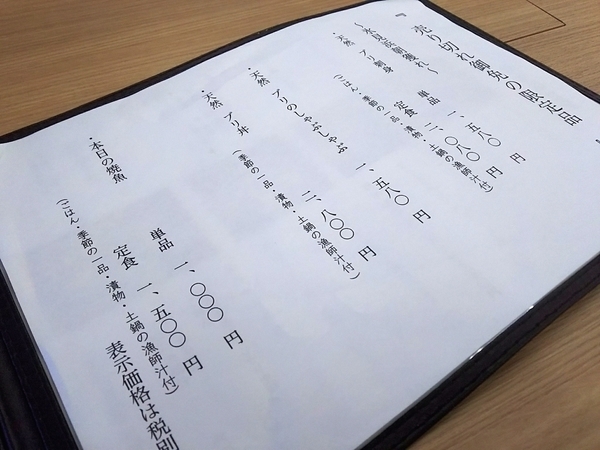 『売り切れ御免の限定品
～氷見皮前獲れ～
・天然 ブリ刺身
単品 一、五八〇円
定食 二、〇八〇円
(ごはん・季節の一品・漬物・土鍋の漁師汁付)
・天然 ブリのしゃぶしゃぶ
一、五八〇円
・天然 ブリ丼
二、八〇〇円
(季節の一品・漬物・土鍋の漁師汁付)
・本日の焼魚
単品 一、〇〇〇円
定食 一、五〇〇円
(ごはん・季節の一品・漬物・土鍋の漁師汁付)
表示価格は税別